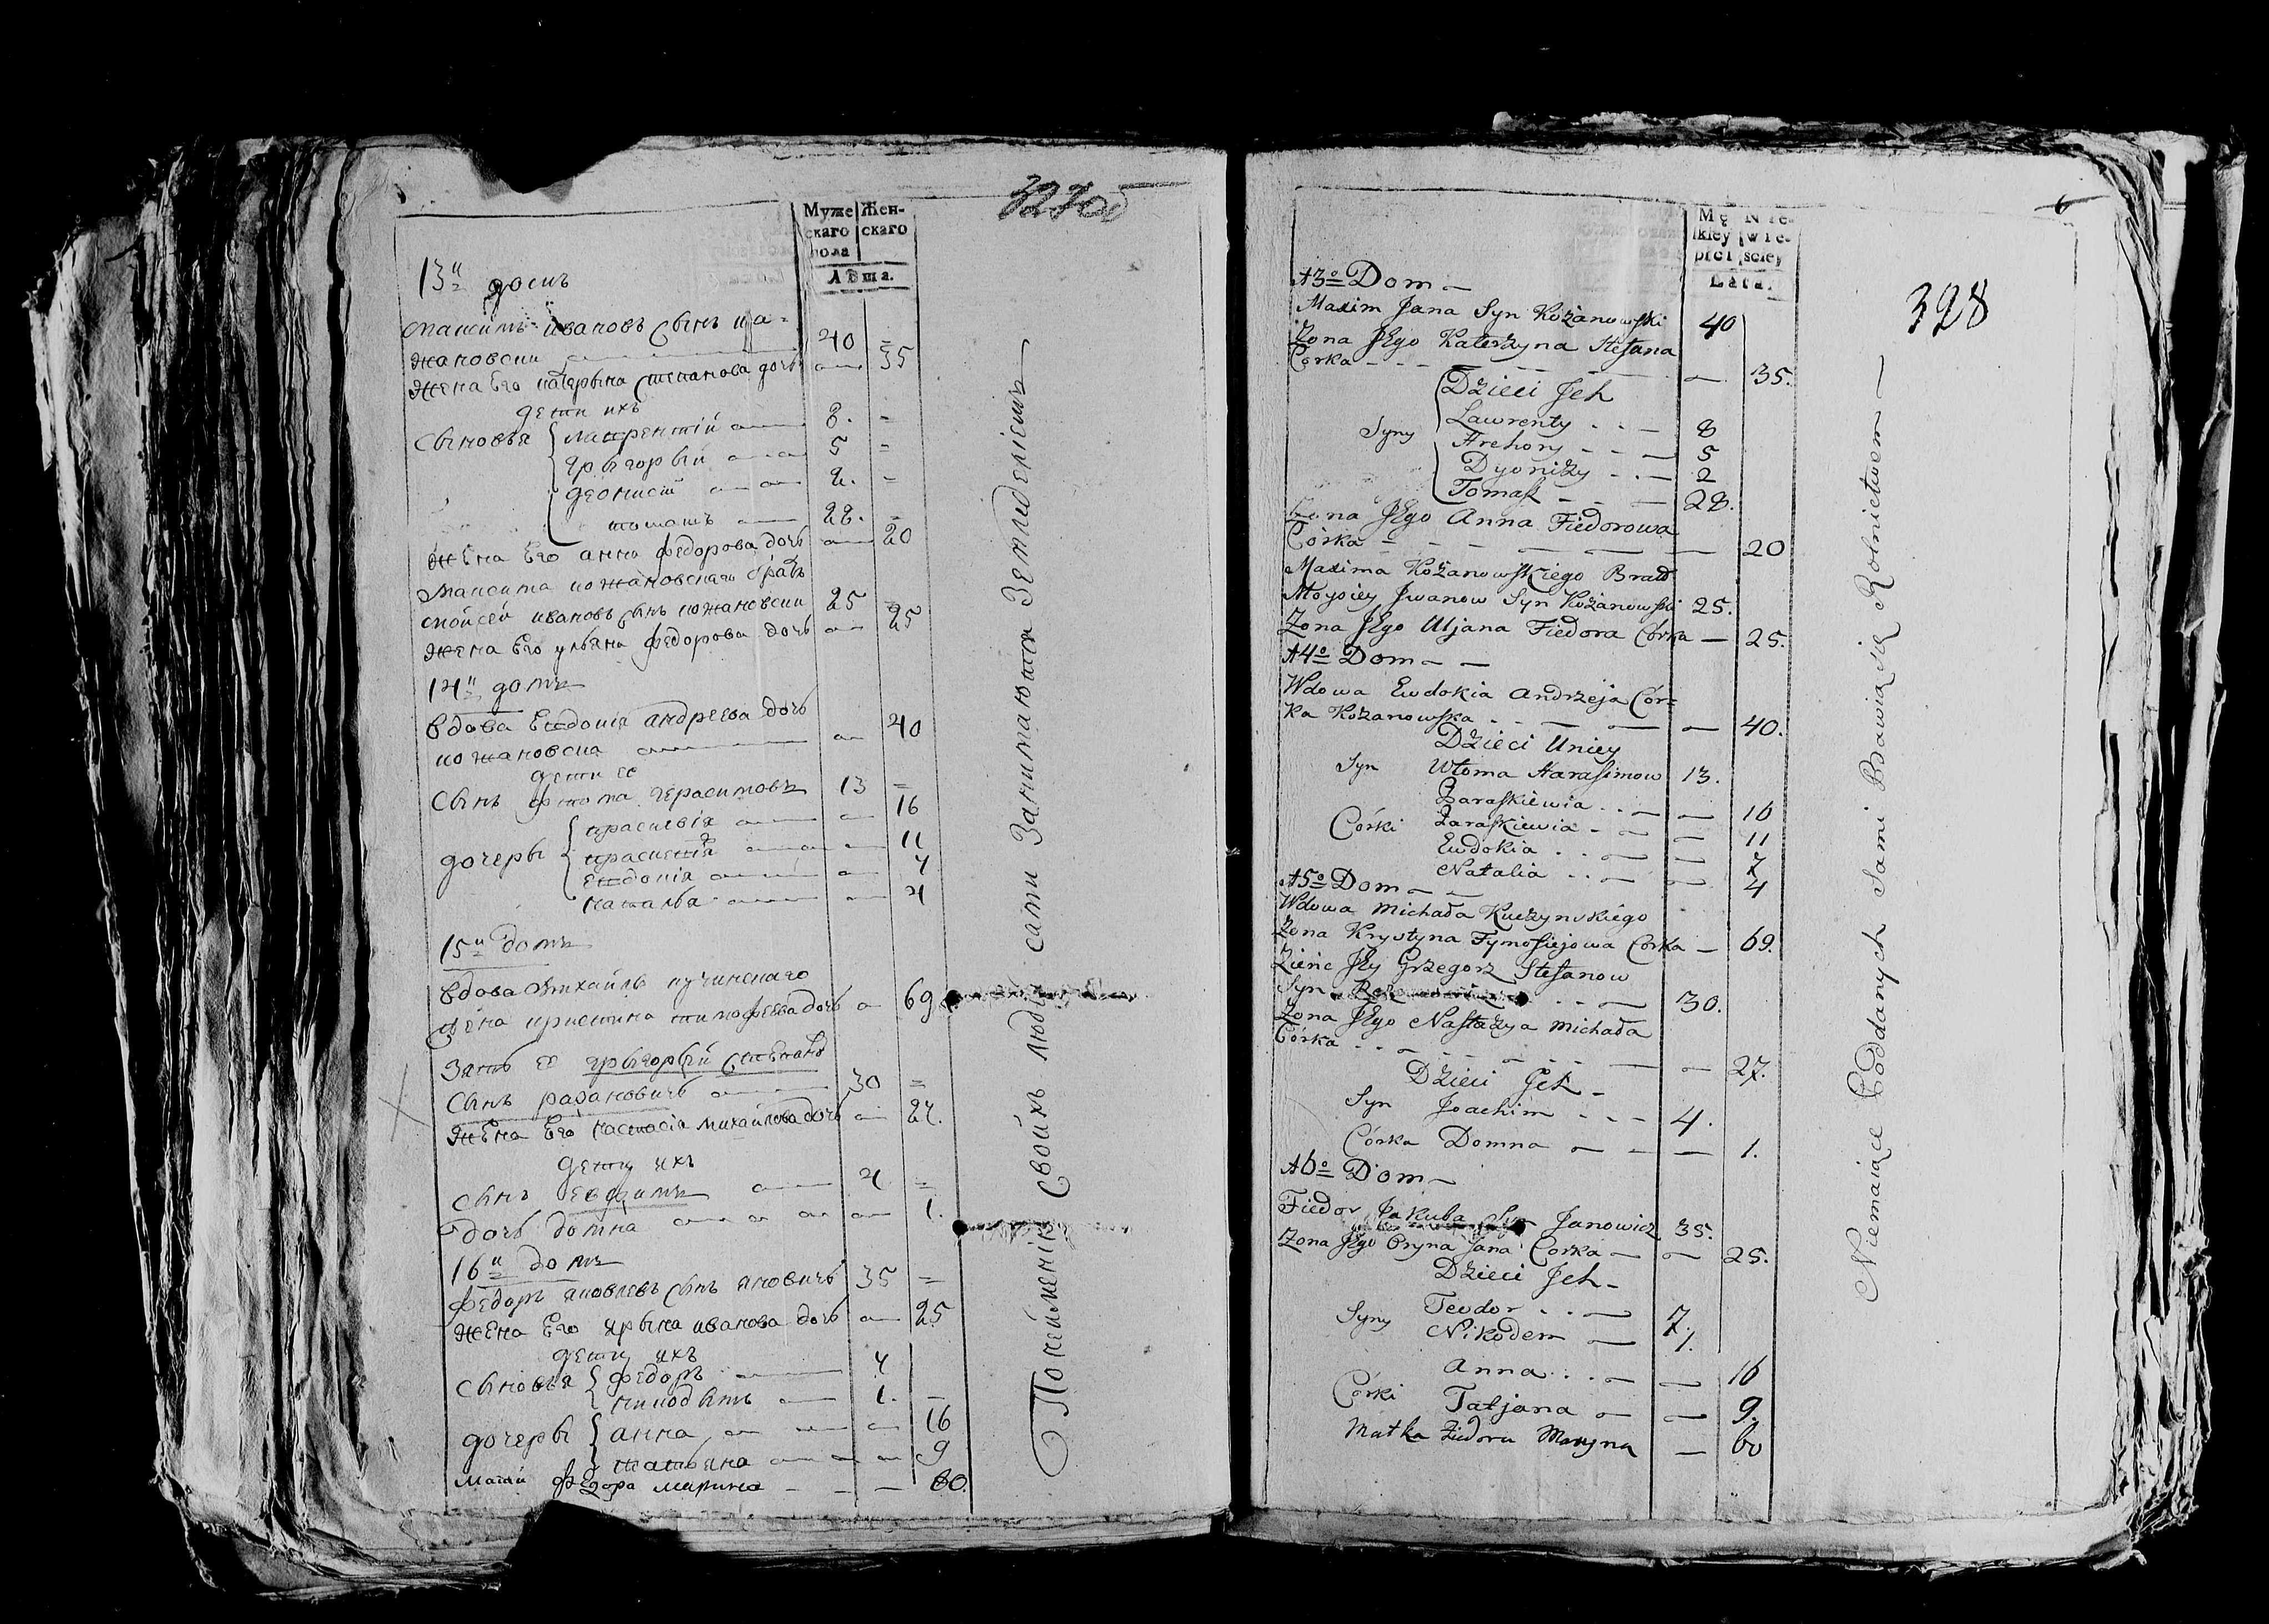 327об
Муже Жен-
скаго скаго
пола
Лѣта.
13й домъ
Максимъ ивановъ сынъ ка=
жановски 40 =
жена Его катерына степанова дочь 35
дети ихъ
Сыновья лаврентий 8. =
грыгорый 5 =
деонисий 2. =
томашъ 28. =
жена Его анна федорова дочь 20
Максима кожановскаго братъ
мойсей ивановъ сынъ кожановски 25 =
жена Его ульяна федорова дочь 25
14й домъ
вдова Евдокия андреева дочь
кожановска 40
дети ее
сынъ фтома герасимовъ 13 =
дочеры праскевия 16
праскевия 11
Евдокия 7
наталья 4
15й домъ
вдова михайла кучинскаго
жена кристина тимофеева дочь 69
Зять ее грыгорый степановъ
сынъ 30 =
жена Его настасия михайлова дочь 27.
дети ихъ
сынъ 4 =
дочь домна 1.
16й домъ
федоръ яковлевъ сынъ яновичъ 35 =
жена Его ирына иванова дочь 25
дети ихъ
сыновья федоръ 7
никодымъ 1. =
дочеры анна 16
татьяна 9
мати федора марина 60.
Свойхъ людей сами Занимаются Земледениемъ
328
Mę Nie-
skiey wie-
płci sciey
Lata.
13o Dom
Maxim Jana Syn Kożanowski 40
Zona Jego Katerżyna Stefana
Córka 35.
Dzieci Jch
Syny Lawrenty 8
Hrehory 5
Dyoniży 2
Tomasz 28.
Żona Jego Anna Fiedorowa
Córka 20
Maxima Kożanowskiego Brat
Moysiey Jwanow Syn Kożanowski 25.
Zona Jego Uljana Fiedora Córka 25.
14o Dom
Wdowa Ewdokia Andrzeja Cór=
ka Kożanowska 40.
Dzieci Uniey
Syn Wtoma Harasimow 13.
Paraskiewia 16
Córki Paraskiewia 11
Ewdokia 7
Natalia 4
15o Dom
Wdowa Michała Kuczynskiego
Żona Krystyna Tymofiejowa Corka 69.
Zienć Jey Grzegorz Stefanow
Syn 30.
Zona Jego Nastazya Michała
Córka 27.
Dzieci Jch
Syn Joachim 4.
Córka Domna 1.
16o Dom
Fiedor Jakuba Syn Janowicz 35.
Zona Jego Oryna Jana Corka 25.
Dzieci Jch
Syny Teodor 7.
Nikodem 1.
Anna 16
Córki Tatjana 9.
Matka Fiedora Maryna 60
Niemaiąc Poddanych Sami Bawią się Rolnictwem